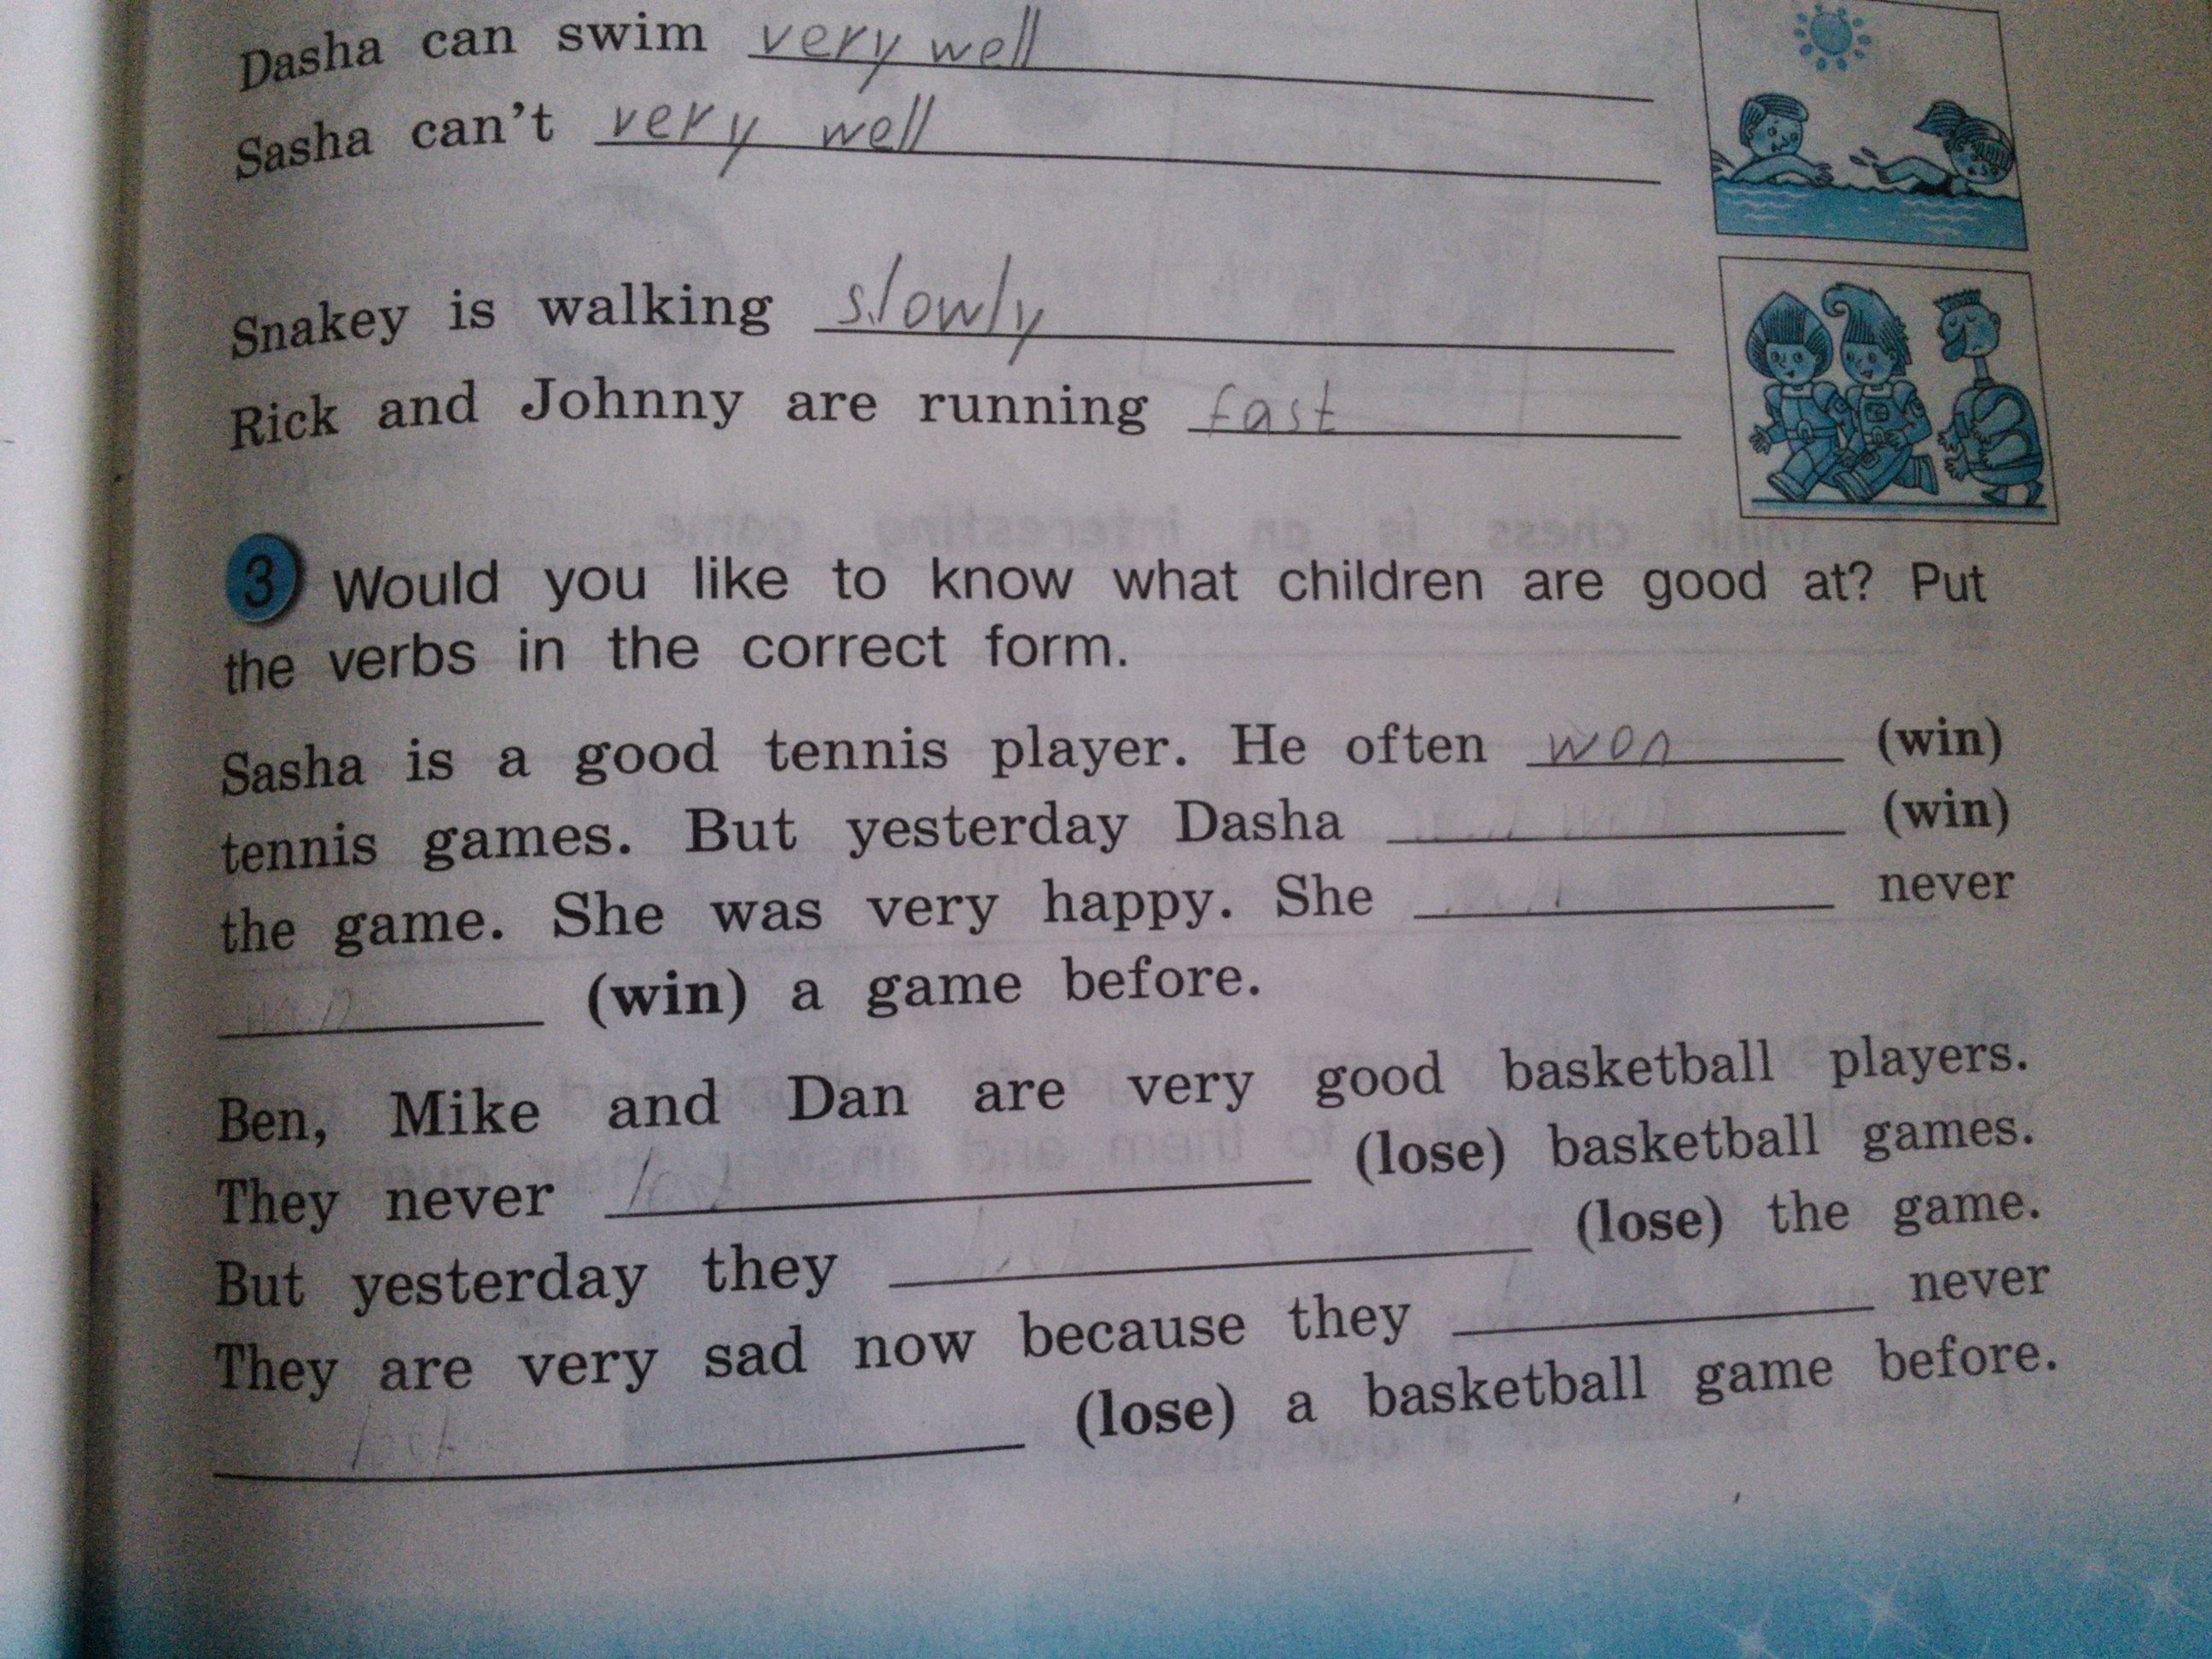 Dasha can swim very well
Sasha can't very well
Snakey is walking slowly
Rick and Johnny are running fast
3 Would you like to know what children are good at? Put
the verbs in the correct form.
Sasha is a good tennis player. He often won (win)
tennis games. But yesterday Dasha (win)
the game. She was very happy. She never
won (win) a game before.
Ben, Mike and Dan are very good basketball players.
They never lost (lose) basketball games.
But yesterday they (lose) the game.
They are very sad now because they never
lost (lose) a basketball game before.